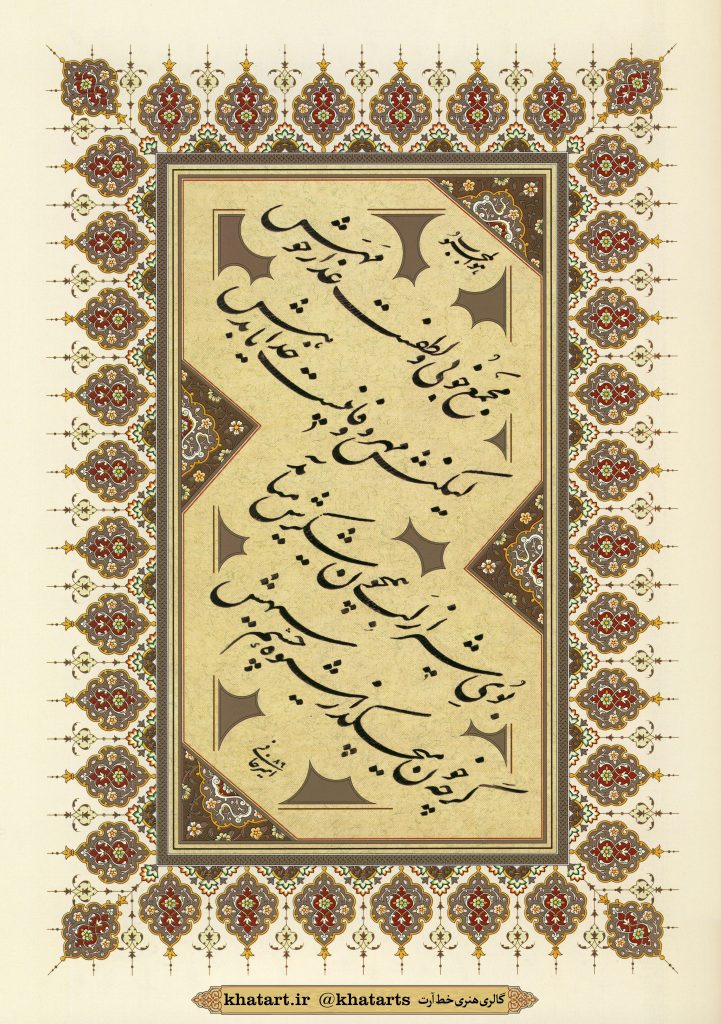 هوالمحبوب
مجمع خوبی و لطفست عذار چو مهش
لیکنش مهر و وفا نیست خدایا بدهش
بوی شیر از لب همچون شکرش میاید
گرچه خون میچکد از شیوه چشم سیهش
khatart.ir @khatarts گالری هنری خط آرت